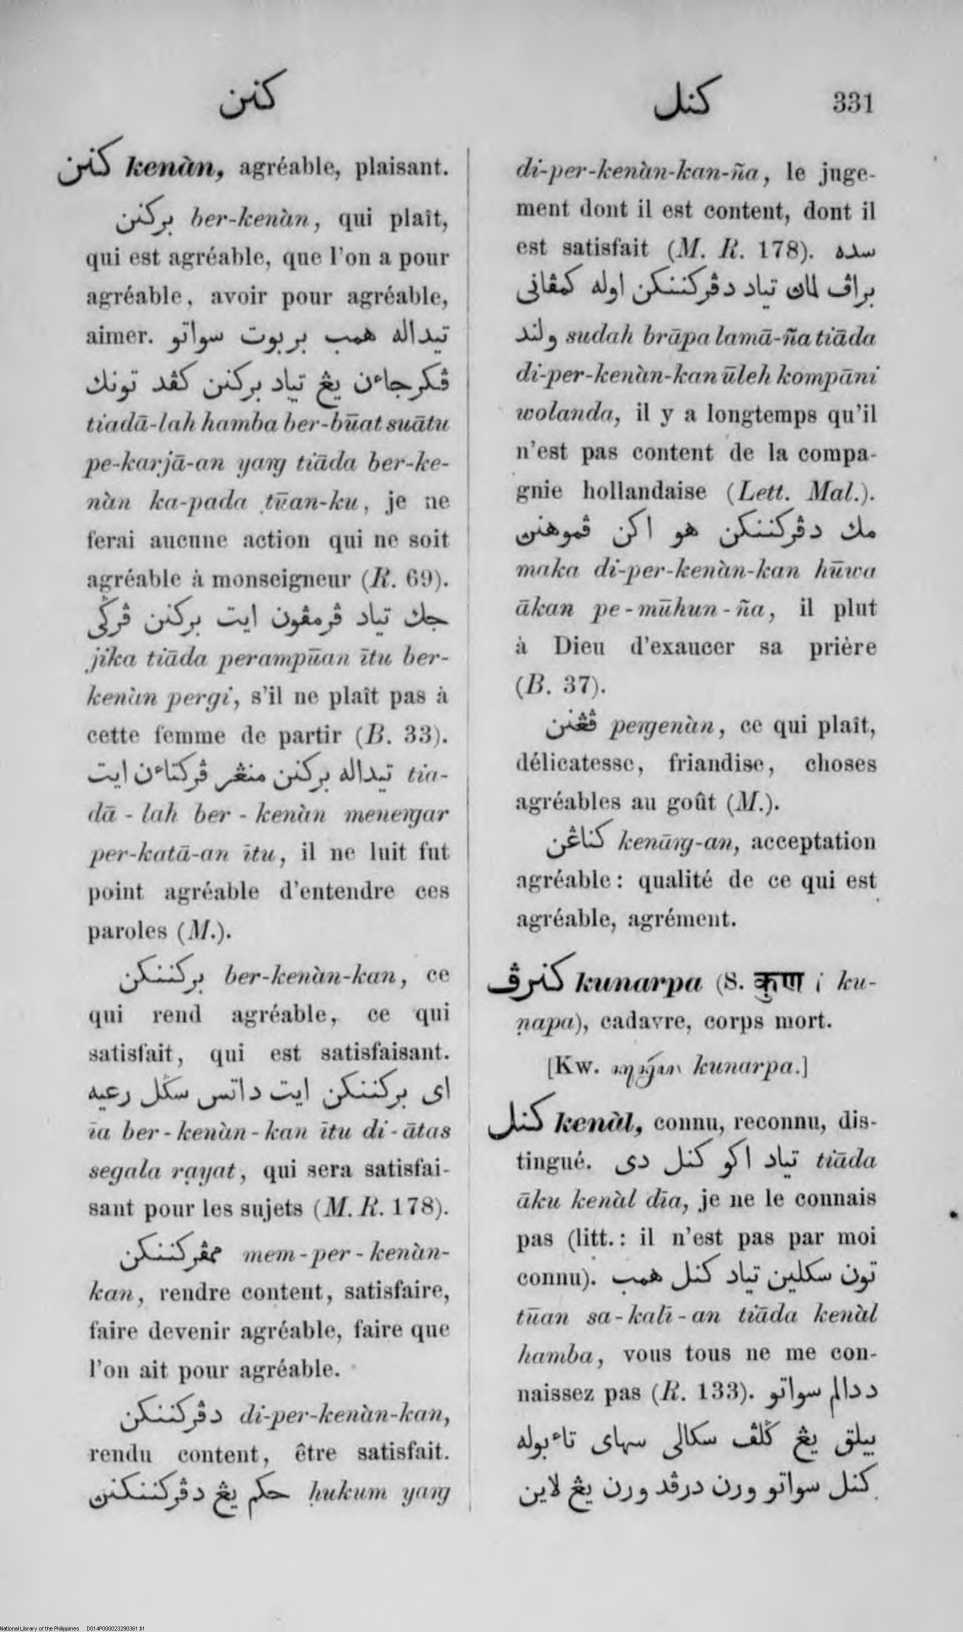 كنن
كنل 331
كنن kenàn, agréable, plaisant.
بركنن ber-kenàn, qui plaît,
qui est agréable, que l'on a pour
agréable, avoir pour agréable,
aimer. تيداله همب بربوت سواتو
ڤكرجاءن يڠ تياد بركنن كڤد تونك
tiadā-lah hamba ber-būat suātu
pe-karjā-an yaɴg tiāda ber-ke-
nàn ka-pada tūan-ku, je ne
ferai aucune action qui ne soit
agréable à monseigneur (R. 69).
جك تياد ڤرمڤون ايت بركنن ڤرڬي
jika tiāda perampūan ītu ber-
kenàn pergi, s'il ne plaît pas à
cette femme de partir (B. 33).
تيداله بركنن منڠر ڤركتاءن ايت tia-
dā - lah ber - kenàn meneɴgar
per-katā-an ītu, il ne luit fut
point agréable d'entendre ces
paroles (M.).
بركننكن ber-kenàn-kan, ce
qui rend agréable, ce qui
satisfait, qui est satisfaisant.
اى بركننكن ايت داتس سڬل رعيه
īa ber - kenàn - kan ītu di - ātas
segala rạyat, qui sera satisfai-
sant pour les sujets (M. R. 178).
ممڤركننكن mem - per - kenàn-
kan, rendre content, satisfaire,
faire devenir agréable, faire que
l'on ait pour agréable.
دڤركننكن di-per-kenàn-kan,
rendu content, être satisfait.
حكم يڠ دڤركننكنن ḥukum yaɴg
di-per-kenàn-kan-ña, le juge-
ment dont il est content, dont il
est satisfait (M. R. 178). سده
براڤ لمان تياد دڤركننكن اوله كمڤانى
ولند sudah brāpa lamā-ña tiāda
di-per-kenàn-kan ūleh kompāni
wolanda, il y a longtemps qu'il
n'est pas content de la compa-
gnie hollandaise (Lett. Mal.).
مك دڤركننكن هو اكن ڤموهنن
maka di-per-kenàn-kan hūwa
ākan pe - mūhun - ña, il plut
à Dieu d'exaucer sa prière
(B. 37).
ڤڠنن peɴgenàn, ce qui plaît,
délicatesse, friandise, choses
agréables au goût (M.).
كناڠن kenāɴg-an, acceptation
agréable : qualité de ce qui est
agréable, agrément.
كنرڤ kunarpa (S. कुण i ku-
ṇapa), cadavre, corps mort.
[Kw. kunarpa.]
كنل kenàl, connu, reconnu, dis-
tingué. تياد اكو كنل دى tiāda
āku kenàl dīa, je ne le connais
pas (litt. : il n'est pas par moi
connu). تون سكلين تياد كنل همب
tūan sa - kalī - an tiāda kenàl
hamba, vous tous ne me con-
naissez pas (R. 133). ددالم سواتو
بيلق يڠ ڬلڤ سكالى سهاى تاءبوله
كنل سواتو ورن درڤد ورن يڠ لاين